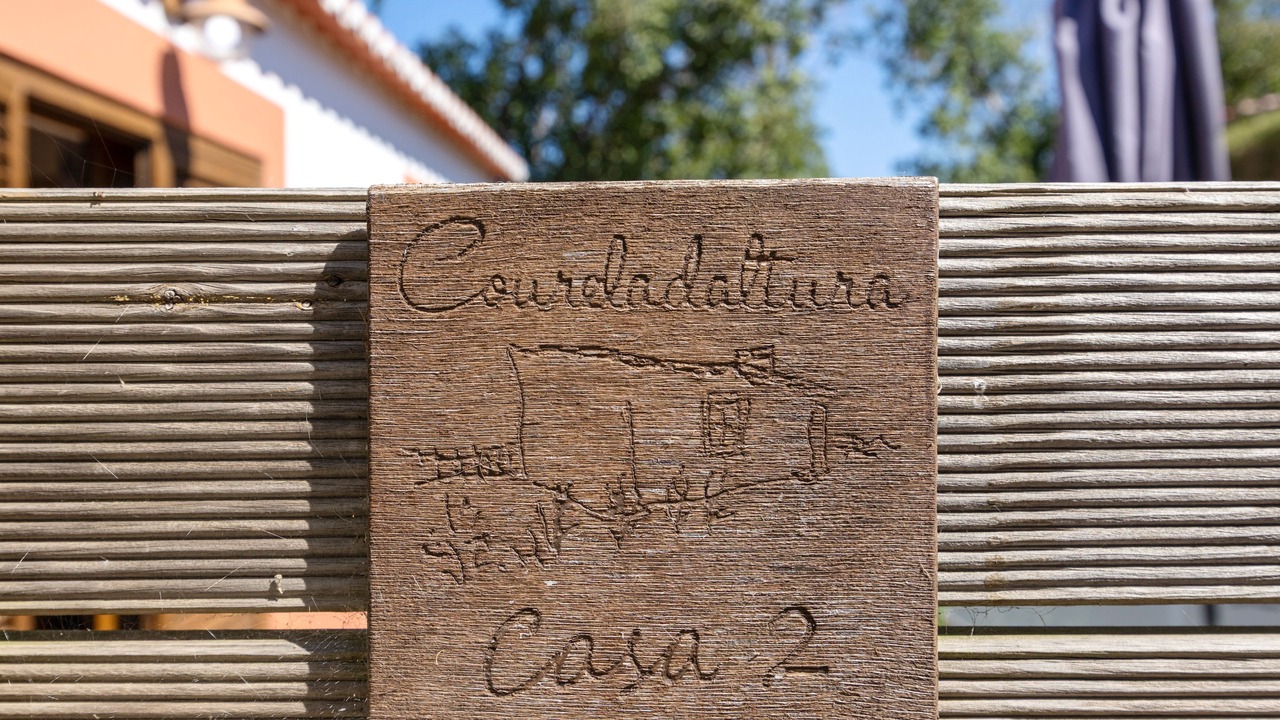 Courdadaltura
Casa 2